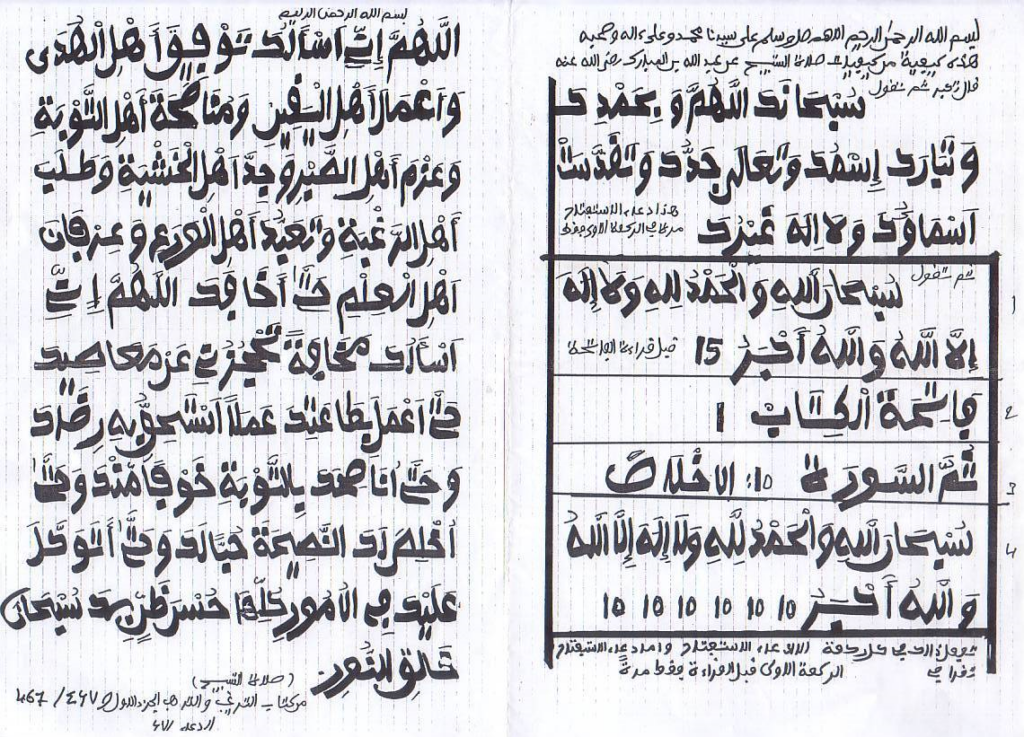 بسم الله الرحمن الرحيم اللهم صل وسلم على سيدنا محمد وعلى اله وصحبه
هذه كيفية من كيفيات صلاة التسبيح عن عبد الله بن المبارك رضي الله عنه
قال تكبر ثم تقول سبحانك اللهم وبحمدك
وتبارك اسمك وتعالى جدك وتقدست
اسماؤك ولا اله غيرك
هذا دعاء الاستفتاح
في الركعة الاولى فقط
ثم تقول سبحان الله والحمد لله ولا إله
إلا الله والله أكبر 15 قبل قراءة الفاتحة
1
فاتحة الكتاب 1
2
ثم السورة 10: الاخلاص
3
سبحان الله والحمد لله ولا إله إلا الله
4
والله أكبر 10 10 10 10 10 10
تفعل في كل ركعة الا دعاء الاستفتاح واما دعاء الاستفتاح
تقرأ في الركعة الاولى قبل القراءة فقط مرة
بسم الله الرحمن الرحيم
اللهم إني اسألك توفيق أهل الهدى
واعمال أهل اليقين ومناصحة أهل التوبة
وعزم أهل الصبر وجد أهل الخشية وطلب
أهل الرغبة وتعبد أهل الورع وعرفان
أهل العلم حتى أخافك اللهم إني
اسألك مخافة تحجزني عن معاصيك
حتى اعمل بطاعتك عملا استحق به رضاك
وحتى اناصحك بالتوبة خوفا منك وحتى
أخلص لك النصيحة حبا لك وحتى أتوكل
عليك في الأمور كلها حسن ظن بك سبحان
خالق النور
(صلاة التسبيح)
من كتاب الترغيب والترهيب الجزء الاول ٤٦٧ / 467